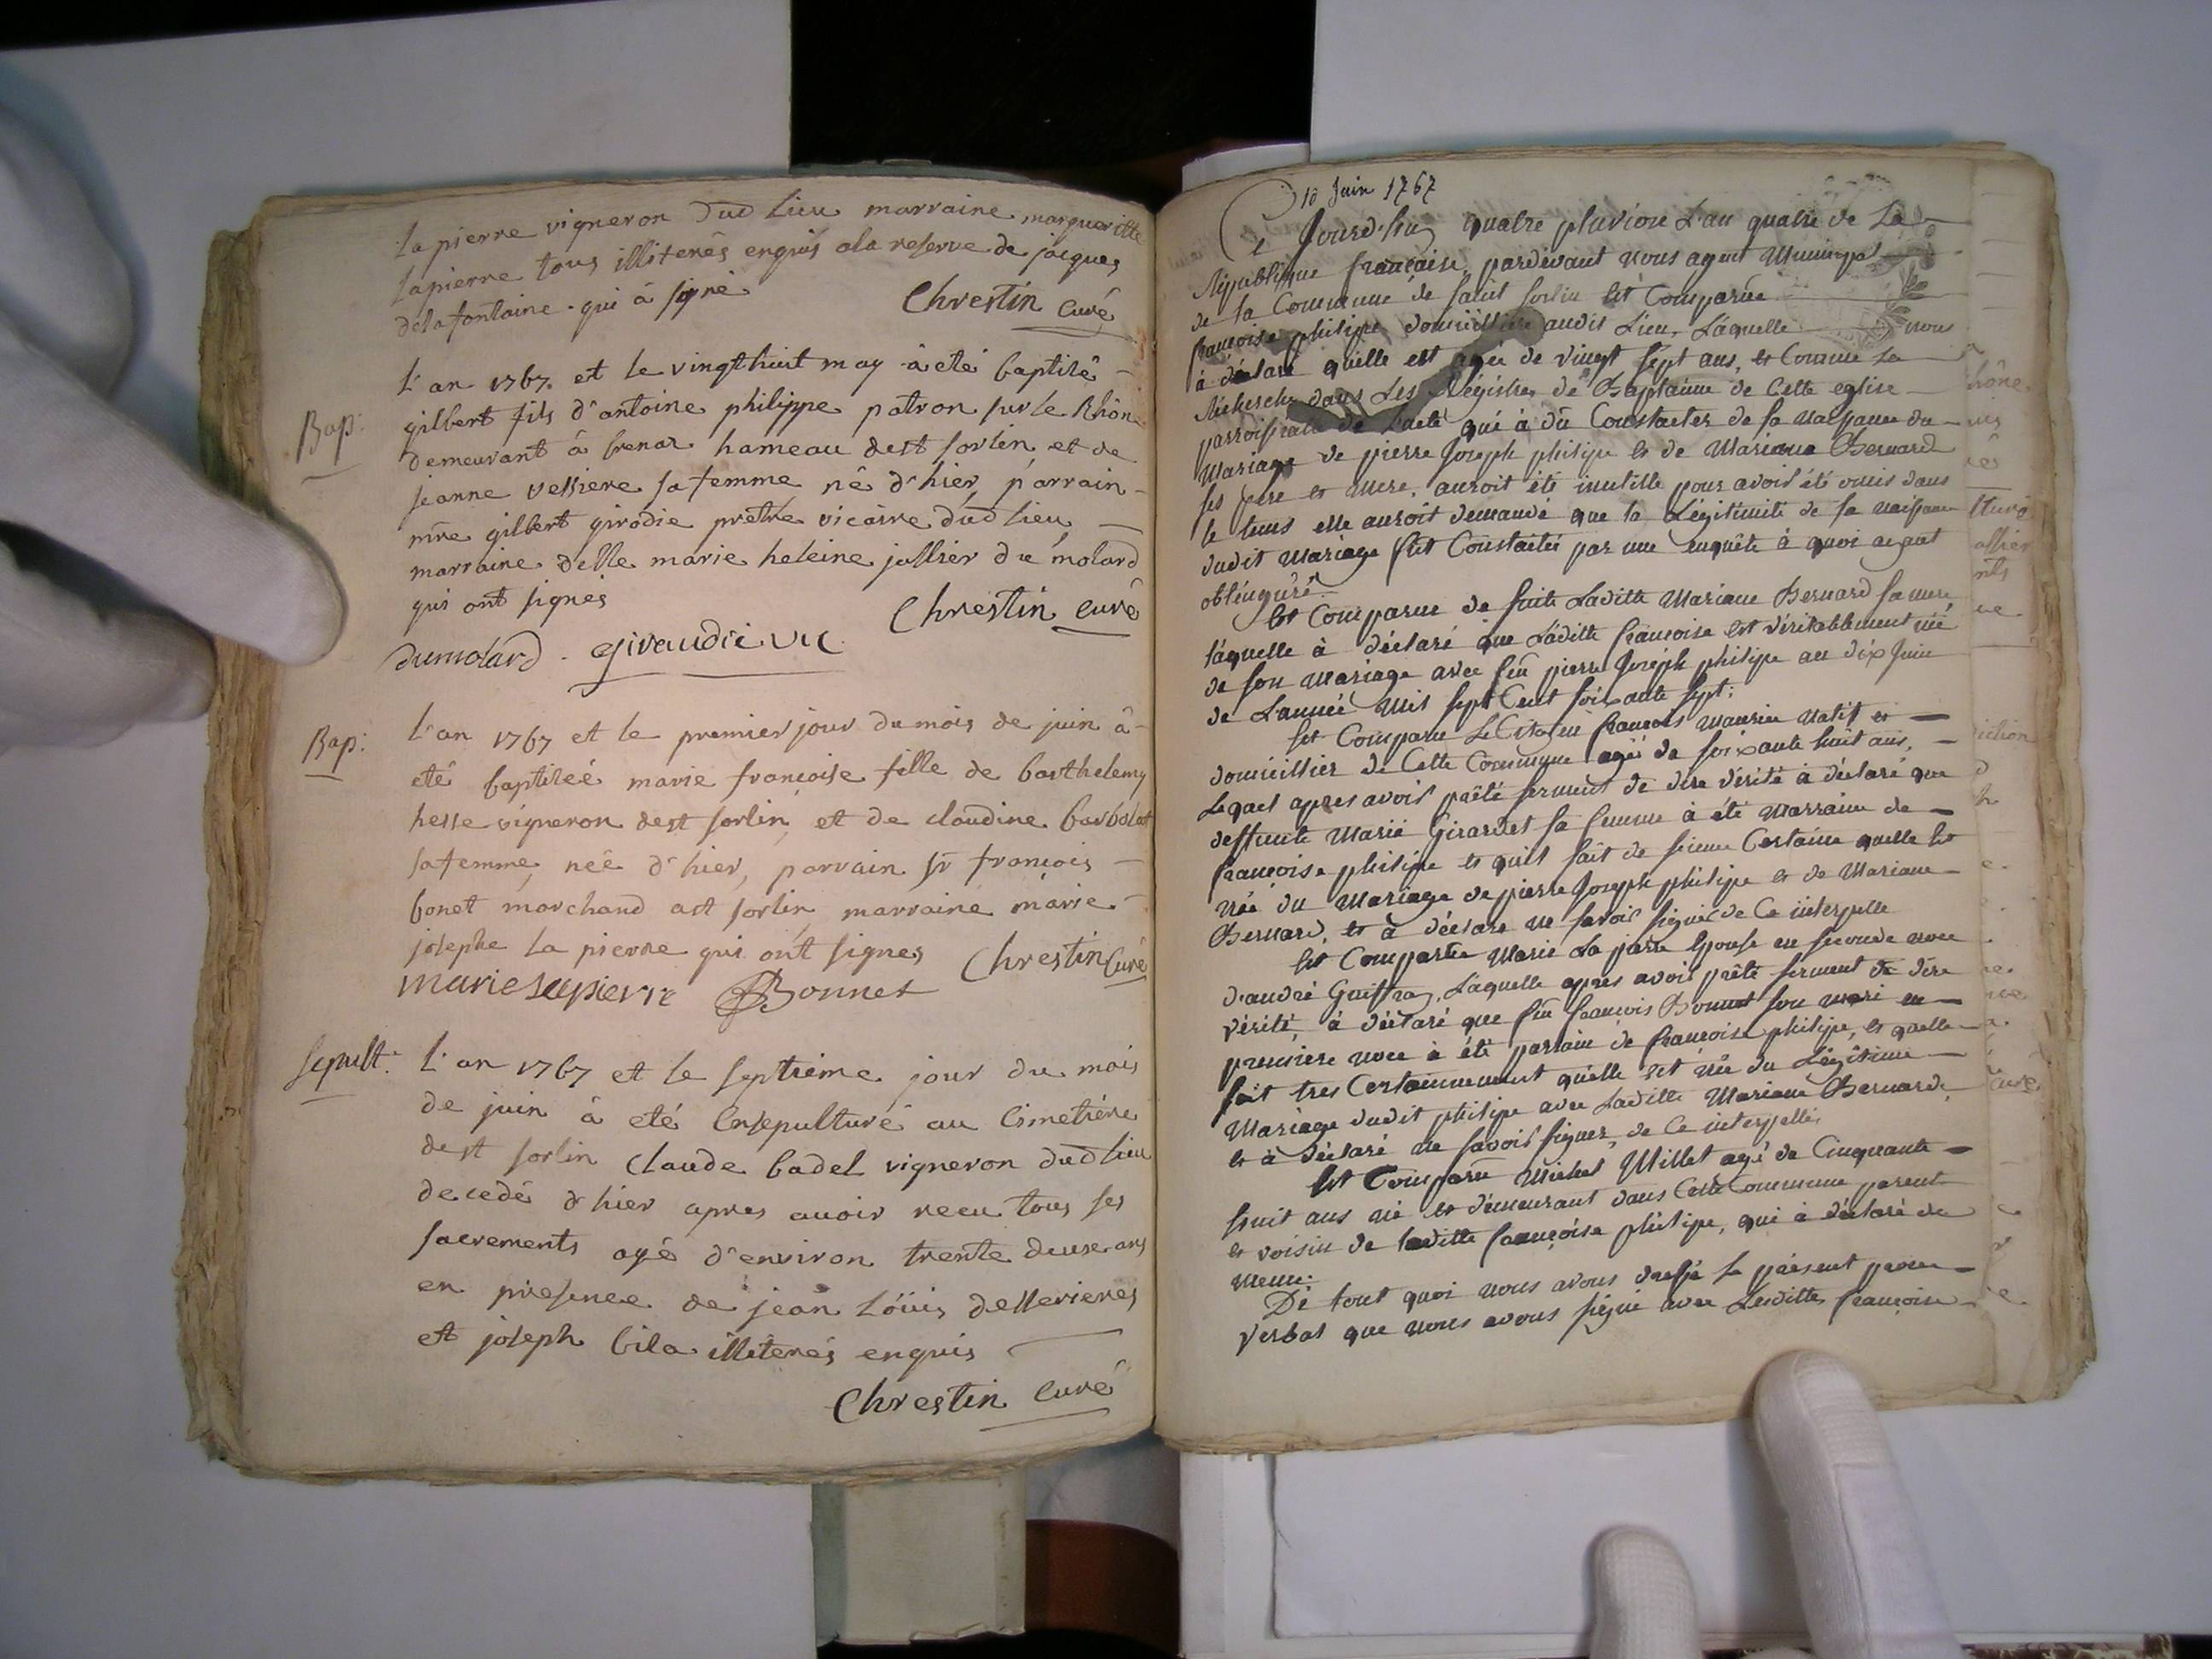 la pierre vigneron dud lieu marraine margueritte
lapierre tous illiterés enquis ala reserve de jacques
delafontaine qui â signé
Chrestin curé
Bap:
L'an 1767. et le vingthuit may â eté baptisé
gilbert fils d'antoine philippe patron sur le Rhône
demeurant â brenaz hameau de st sorlin et de
jeanne vessiere sa femme né d'hier, parrain
mre gilbert girodie pretre vicaire dud lieu
marraine delle marie heleine jullier du molard
qui ont signés
Chrestin curé
dumolard. Giraudié vic
Bap:
L'an 1767 et le premier jour du mois de juin â
eté baptiseé marie francoise fille de barthelemy
hesse vigneron de st sorlin et de claudine barbolat
sa femme neé d'hier, parrain sr francois
bonet marchand a st sorlin marraine marie
josephe la pierre qui ont signes
Chrestin Curé
marie lapierre Bonnet
Sepult:
L'an 1767 et le septieme jour du mois
de juin â eté Ensepulturé au Cimetiére
de st sorlin Claude badel vigneron dud lieu
decedé d'hier apres avoir recu tous ses
sacrements agé d'environ trente deux ans
en presence de jean Loüis desserieres
et joseph bila illiterés enquis
Chrestin curé
10 Juin 1767
Ce Jourd'huy quatre pluviose L'an quatre de La
République française, pardevant nous agent Municipal
de la Commune de saint sorlin Est Comparüe
françoise philipe domicilliée audit Lieu, Laquelle nous
à déclaré qu'elle est agée de vingt sept ans, et Comme La
Recherche dans Les Régistres de Baptaime de Cette eglise
parroissialle de L'acte qui à dû Constater de sa naissance du
Mariage de pierre Joseph philipe et de Mariane Bernard
ses pere et mere, auroit été inutille pour avoir été omis dans
le tems elle auroit demandé que la Légitimité de sa naissance
dudit Mariage fut Constatée par une enquête à quoi ayant
obtemperé
Est Comparue de suite Laditte Mariane Bernard sa mere
laquelle à déclaré que Laditte françoise est véritablement née
de son mariage avec feu pierre Joseph philipe au dix Juin
de L'année Mil sept Cent soixante sept.
Est Comparu Le Citoyen françois natif et
domicillier de Cette Commune agé de soixante huit ans,
Lequel apres avoir prêté serment de dire vérité à déclaré que
deffunte Marie Girardet sa femme à été Marraine de
françoise philipe et qu'il sait de science Certaine quelle est
née du Mariage de pierre Joseph philipe et de Mariane
Bernard, et à déclaré ne savoir signer de Ce interpellé
Est Comparüe Marie La pierre Epouse en seconde noce
d'andré Guiffray, Laquelle apres avoir prêté serment de dire
vérité, à déclaré que feu françois Bonnet son mari en
premiere noce à été parrain de françoise philipe, et quelle
sait tres Certainement qu'elle est née du Légitime
Mariage dudit philipe avec Laditte Mariane Bernarde
et à déclaré ne savoir signer, de Ce interpellée
Est Comparu Michel Millet agé de Cinquante
huit ans né et demeurant dans Cette Commune parent
et voisin de laditte françoise philipe, qui à déclaré de
meme.
De tout quoi nous avons dressé le présent procu
verbal que nous avons signé avec Lesdittes françoise